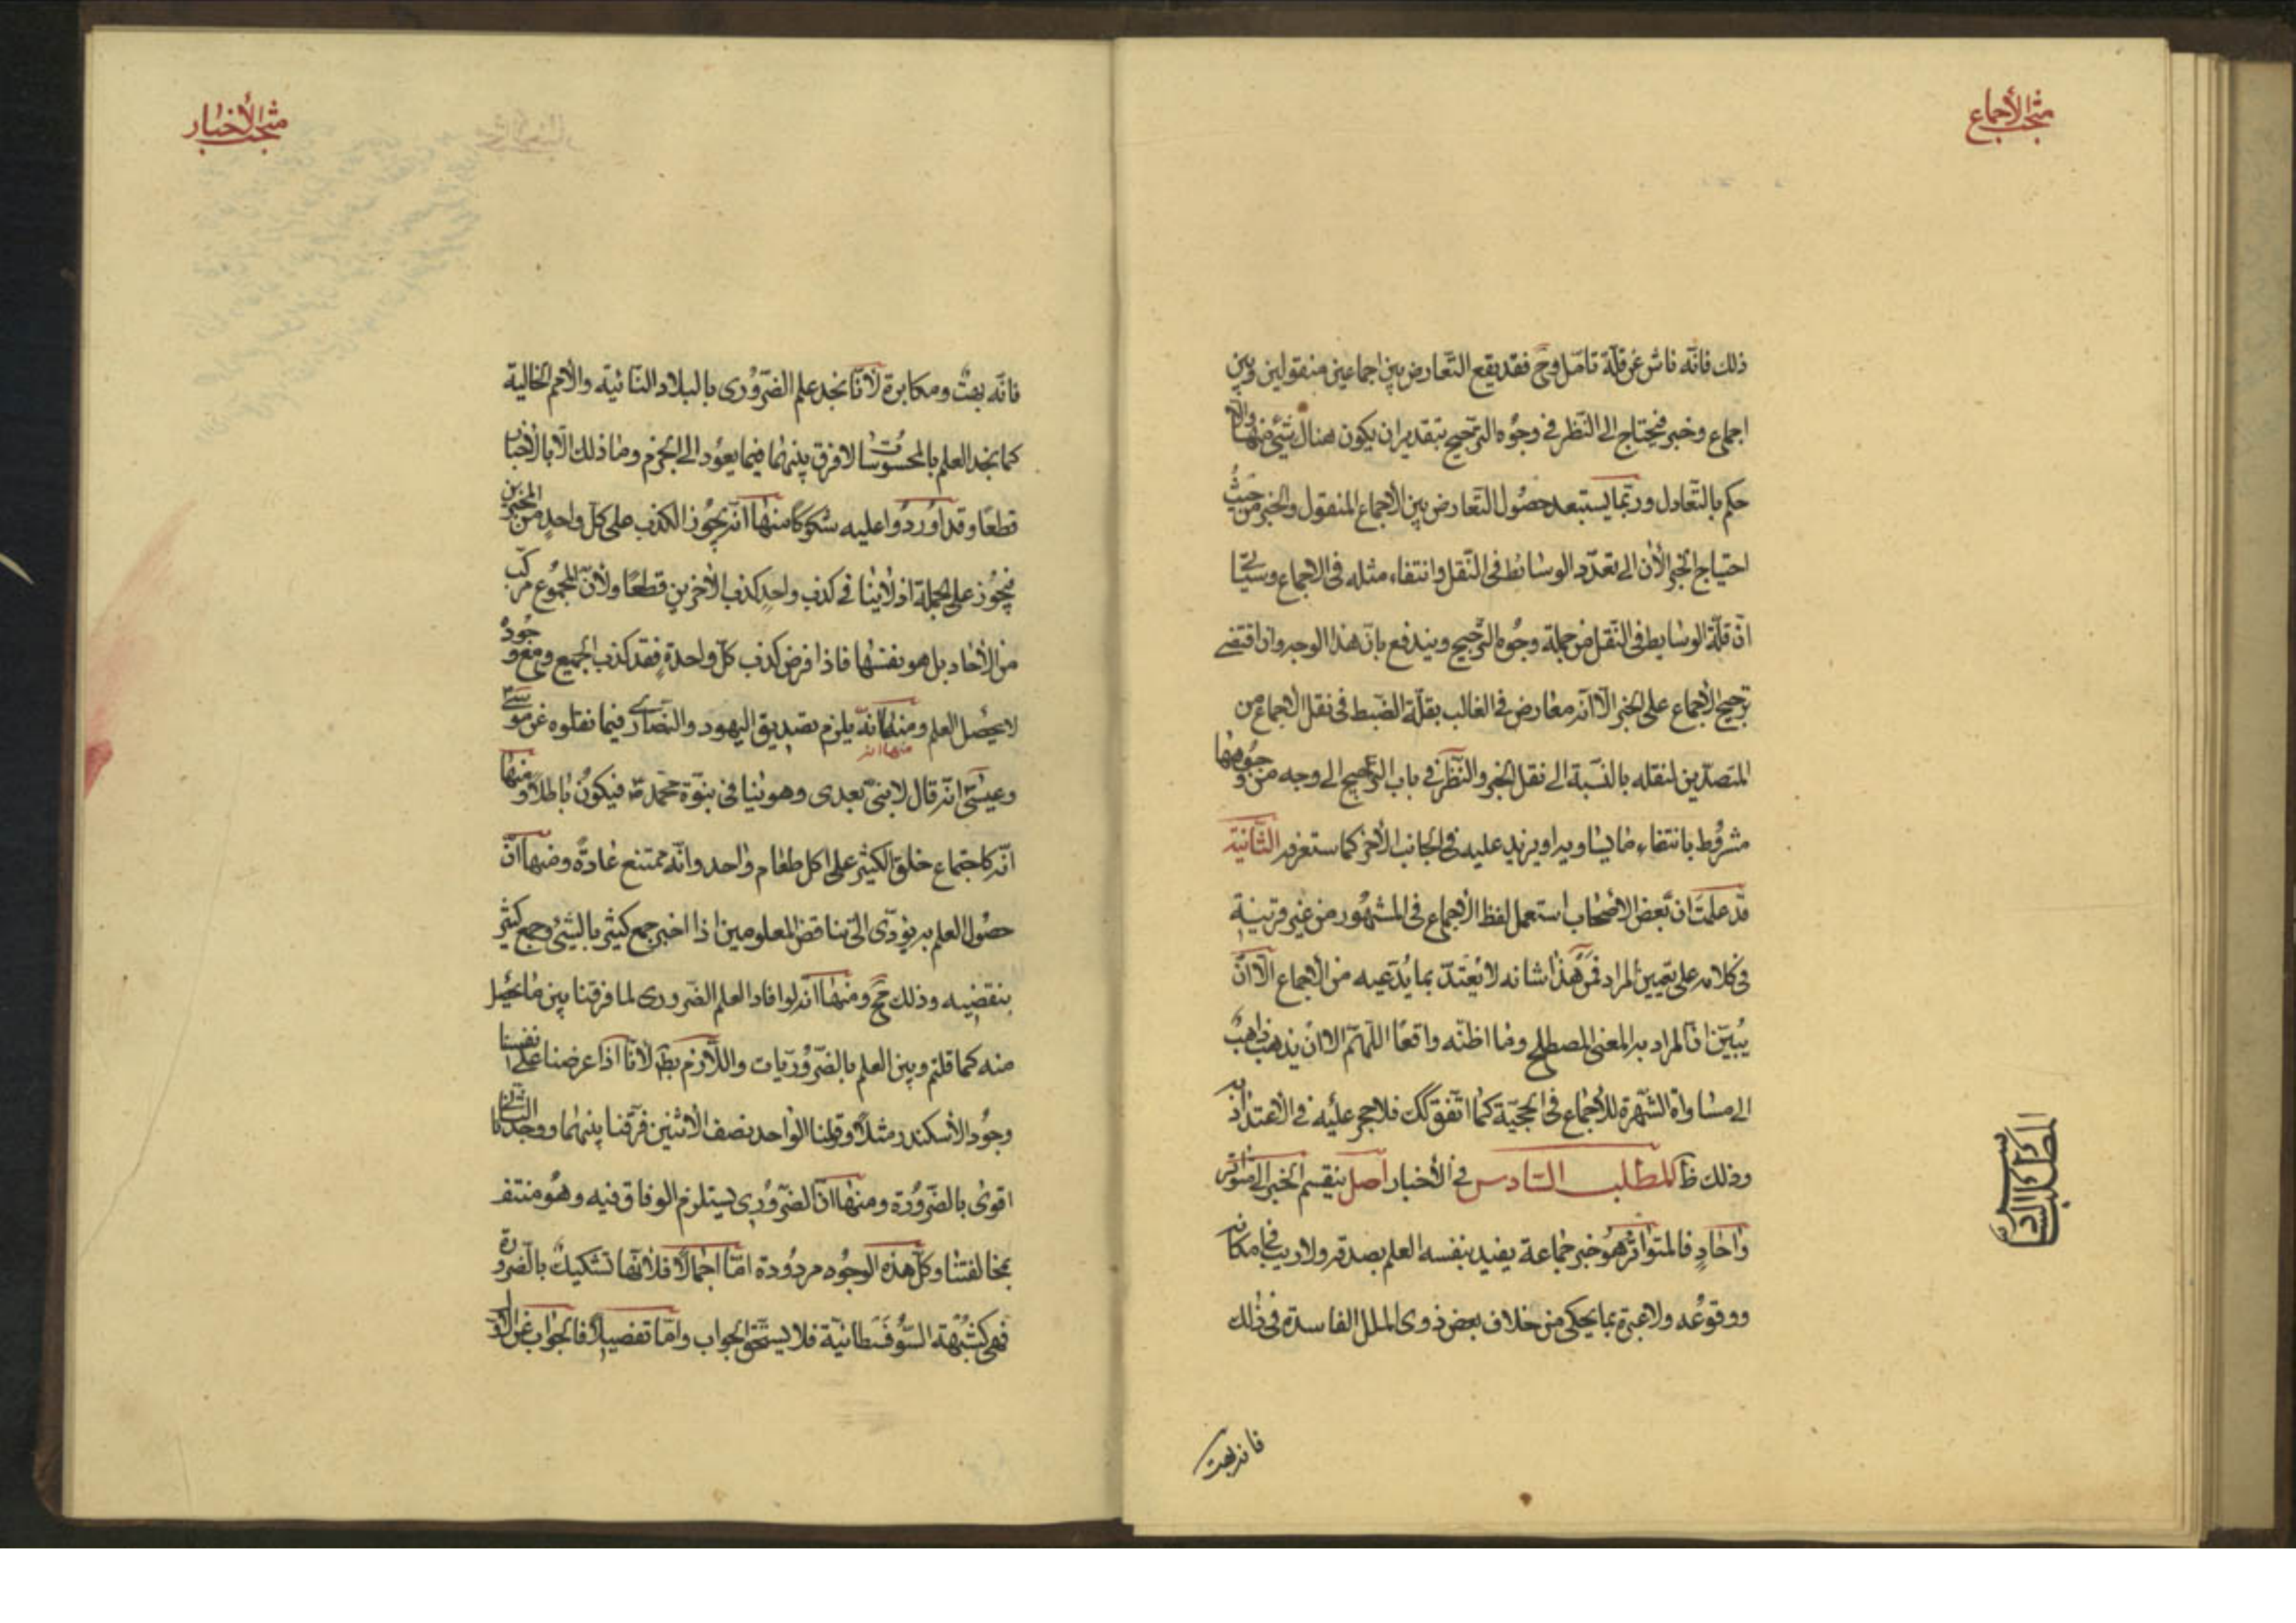 مبحث الأجماع
ذلك فانّه ناش عن قلّة تامّل وح فقد يقع التّعارض بين اجماعين منقولين وبين
اجماع وخبر فيحتاج الى النّظر فى وجوه التّرجيح بتقدير ان يكون هناك شئ منها والّا
حكم بالتّعادل وربّما يستبعد حصول التّعارض بين الأجماع المنقول والخبر من حيث
احتياج الخبر الأن الى تعدّد الوسائط فى النّقل وانتفاء مثله فى الاجماع وسياتى
انّ قلّة الوسايط فى النّقل من جملة وجوه التّرجيح ويندفع بانّ هذا الوجه وان اقتضى
ترجيح الأجماع على الخبر الّا انّه معارض فى الغالب بقلّة الضّبط فى نقل الأجماع من
المتصدّين لنقله بالنّسبة الى نقل الخبر والنّظر فى باب التّرجيح الى وجه من وجوهها
مشروط بانتفاء ما يساويه او يزيد عليه فى الجانب الأخر كما ستعرفه الثّانية
قد علمت انّ بعض الأصحاب استعمل لفظ الأجماع فى المشهور من غير قرينة
فى كلامه على تعيين المراد فمن هذا شانه لا يعتدّ بما يدّعيه من الأجماع الّا ان
يبيّن انّ المراد به المعنى المصطلح وما اظنّه واقعًا اللّهمّ الّا ان يذهب ذاهب
الى مساواة الشّهرة للأجماع فى الحجيّة كما اتّفق لك فلا حجر عليه فى الأعتداد به
وذلك ظ المطلب السّادس فى الأخبار اصل ينقسم الخبر الى متواتر
واحاد فالمتواتر هو خبر جماعة يفيد بنفسه العلم بصدقه ولا ريب فى امكانه
ووقوعه ولا عبرة بما يحكى من خلاف بعض ذوى الملل الفاسدة فى ذلك
المطلب السادس
فانه بهت
مبحث الأخبار
فانّه بهت ومكابرة لأنّا نجد علم الضّرورى بالبلاد النّائية والأمم الخالية
كما نجد العلم بالمحسوسات لا فرق بينهما فيما يعود الى الجزم وما ذلك الّا بالأخبار
قطعًا وقد اوردوا عليه شكوكًا منها انّه يجوز الكذب على كلّ واحد من المخبرين
فيجوز على الجملة اذ لا ينافى كذب واحد كذب الأخرين قطعًا ولأنّ المجموع مركّب
من الأحاد بل هو نفسها فاذا فرض كذب كلّ واحدة فقد كذب الجميع ومع وجوده
لا يحصل العلم ومنها انّه يلزم تصديق اليهود والنّصارى فيما نقلوه عن موسى
منها انه
وعيسى انّه قال لا نبىّ بعدى وهو ينافى نبوّة محمّد فيكون باطلًا ومنها
انّه كاجتماع خلق الكثير على اكل طعام واحد وانّه ممتنع عادة ومنها انّ
حصول العلم به يؤدّى الى تناقض المعلومين اذا اخبر جمع كثير بالشّئ وجمع كثير
بنقضيه وذلك مح ومنها انّه لو افاد العلم الضّرورى لما فرقنا بين ما يحصل
منه كما قلتم وبين العلم بالضّروريّات واللّازم بط لأنّا اذا عرضنا على انفسنا
وجود الأسكندر مثلًا وقولنا الواحد نصف الأثنين فرّقنا بينهما ووجدنا الثّانى
اقوى بالضّرورة ومنها انّ الضّرورى يستلزم الوفاق فيه وهو منتف
بمخالفتنا وكلّ هذه الوجوه مردودة امّا اجمالًا فلأنّها تشكيك بالضّرورة
فهى كشبهة السّوفسطائيّة فلا يستحق الجواب وامّا تفصيلًا فالجواب عن الأوّل